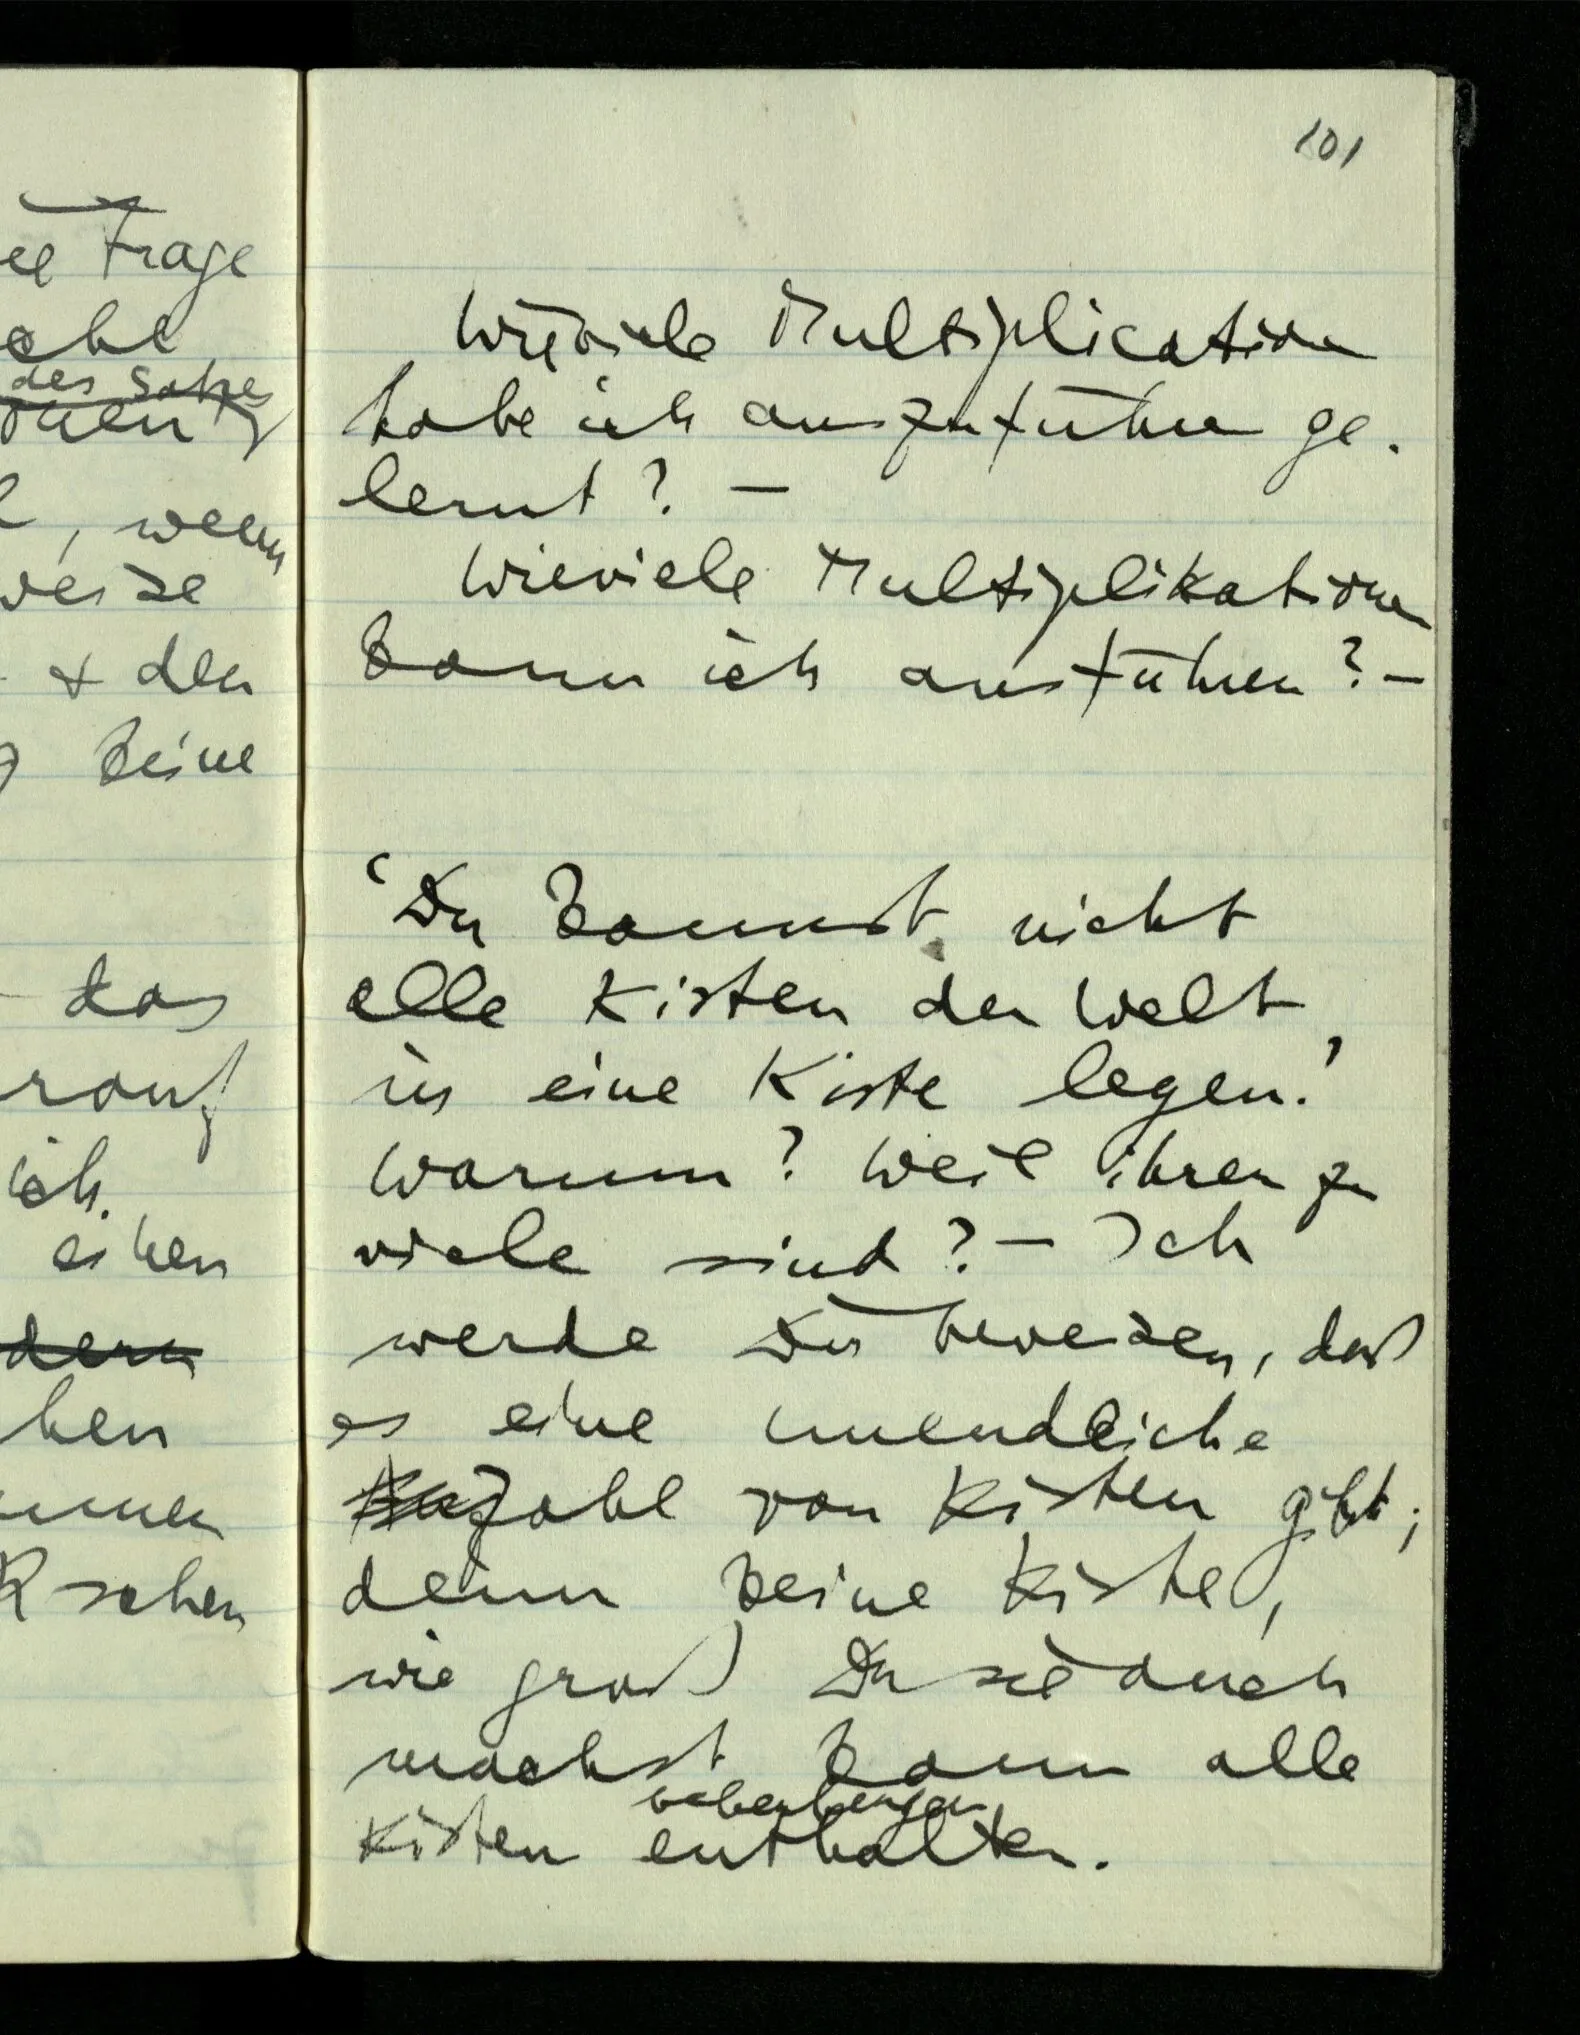 101
Frage
des Satzes
, wenn
weise
+ den
keine
das
rauf
ich
einen
dern
ben
sehen
Wieviele Multiplication
habe ich auszuführen ge-
lernt? –
Wieviele Multiplikationen
kann ich ausführen? –
‘Du kannst nicht
alle Kisten der Welt
in eine Kiste legen.’
Warum? Weil ihrer zu
viele sind? – Ich
werde Dir beweisen, daß
es eine unendliche
Anzahl von Kisten gibt;
denn keine Kiste,
wie groß Du sie auch
machst kann alle
beherbergen
Kisten enthalten.